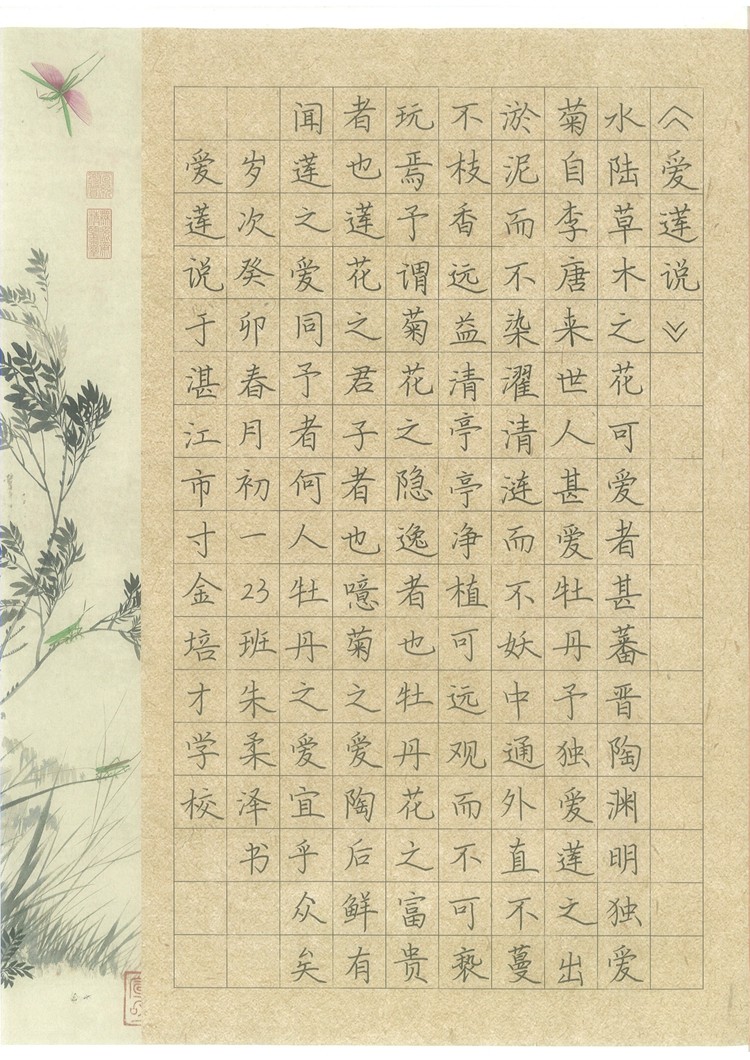 《爱莲说》
水陆草木之花可爱者甚蕃晋陶渊明独爱
菊自李唐来世人甚爱牡丹予独爱莲之出
淤泥而不染濯清涟而不妖中通外直不蔓
不枝香远益清亭亭净植可远观而不可亵
玩焉予谓菊花之隐逸者也牡丹花之富贵
者也莲花之君子者也噫菊之爱陶后鲜有
闻莲之爱同予者何人牡丹之爱宜乎众矣
岁次癸卯春月初一23班朱柔泽书
爱莲说于湛江市寸金培才学校